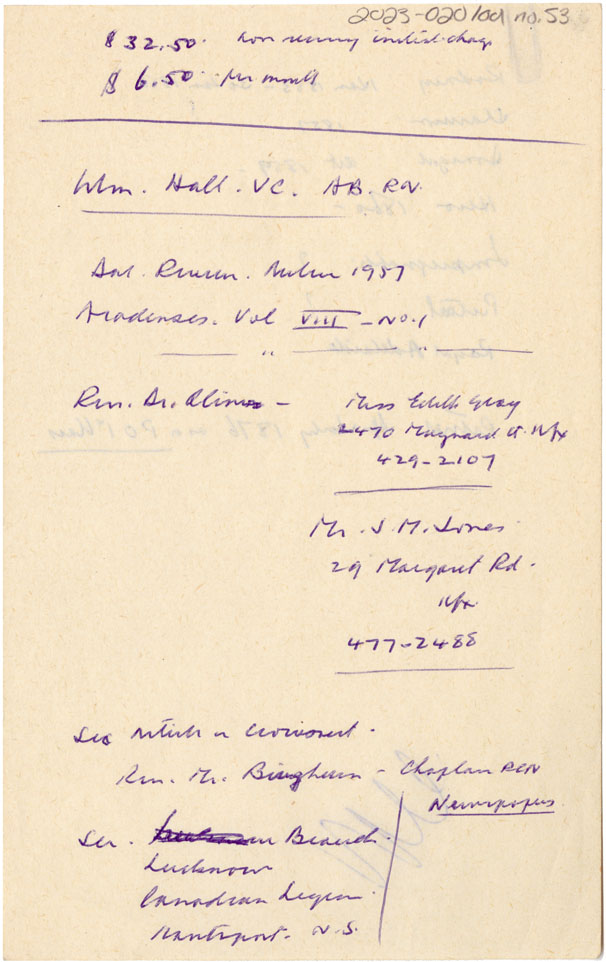 2023-020/001 no. 53
$ 32.50. non recurring initial charge
$ 6.50 per month
Wm. Hall. VC. AB. RN.
1957
Acadensis. Vol VIII - No. 1
"
Rev. Dr. Oliver -
Miss Edith Gray
2470 Maynard St. Hfx
429-2107
Mr. J. M. Jones
29 Margaret Rd.
Hfx
477-2488
See Article in Crowsnest.
Rev. Mr. Bingham - Chaplain RCN
Newspapers
Sec. Branch
Lucknow
Canadian Legion
Hantsport. N.S.